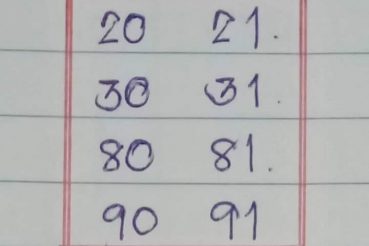 20 21.
30 31.
80 81.
90 91